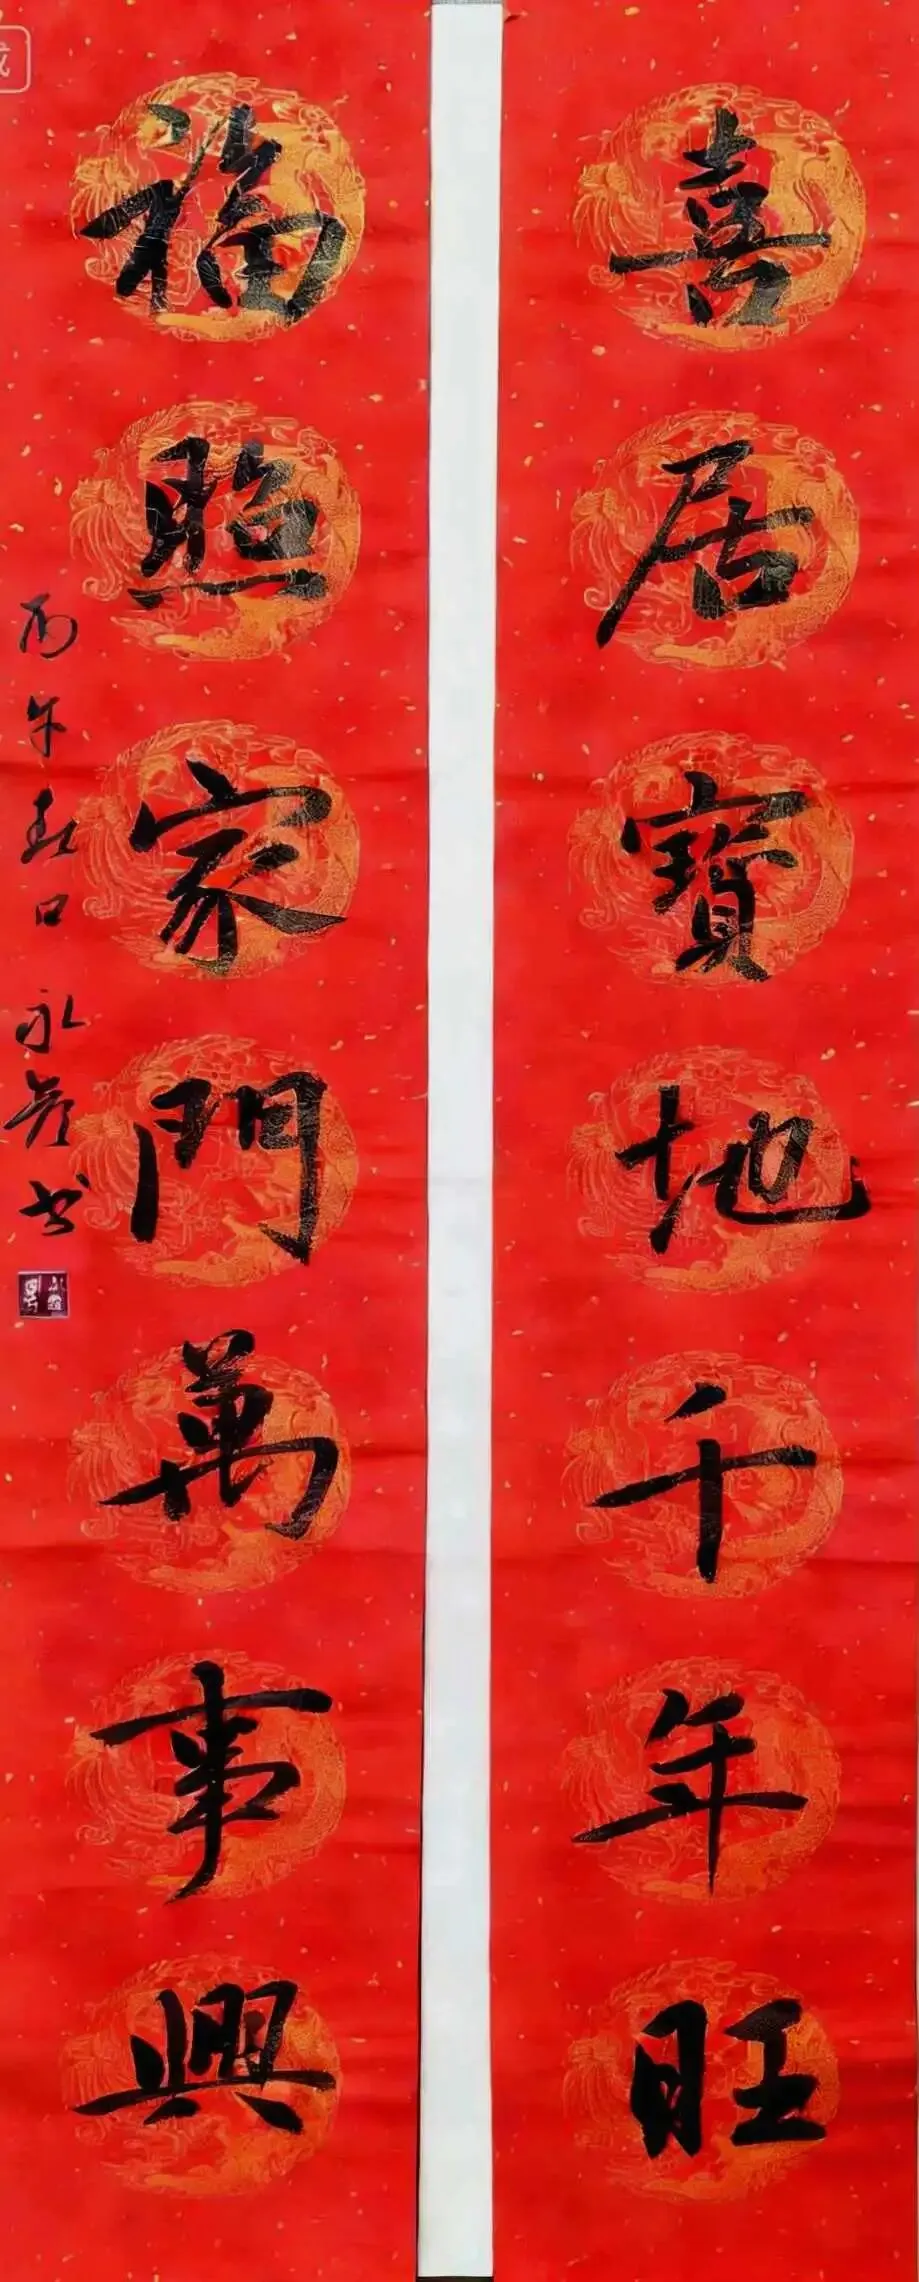 喜居寳地千年旺
福照家門萬事興
丙午春日永彦书